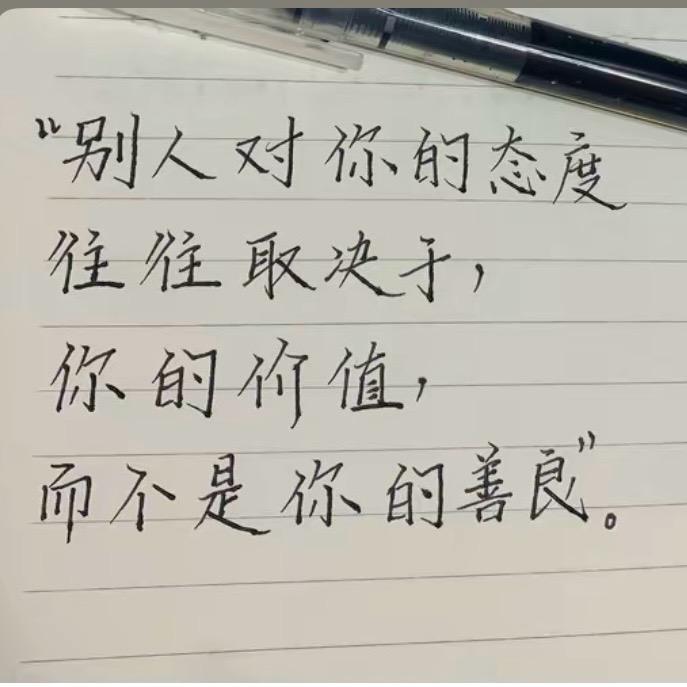 “别人对你的态度
往往取决于，
你的价值，
而不是你的善良”。